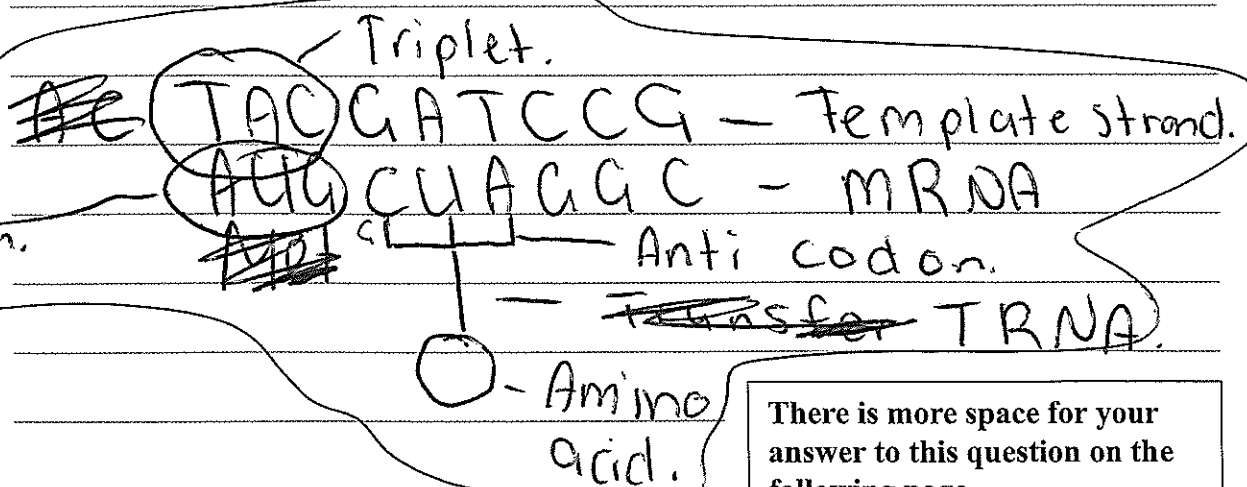 Triplet.
TACGATCCG - Template strand.
AUG CUAGGC - MRNA
n.
Anti codon.
- TRNA.
- Amino
acid.
There is more space for your
answer to this question on the
following page